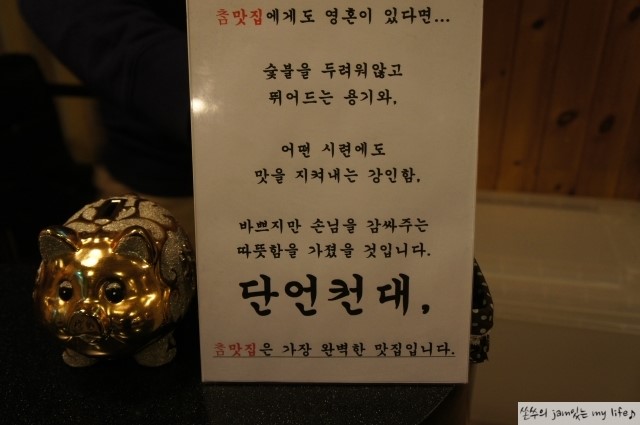 츰맛집에게도 영혼이 있다면...
숯불을 두려워않고
뛰어드는 용기와,
어떤 시련에도
맛을 지켜내는 강인함,
바쁘지만 손님을 감싸주는
따뜻함을 가졌을 것입니다.
단언컨대,
츰맛집은 가장 완벽한 맛집입니다.
쏜쑤의 jam있는 my life♪